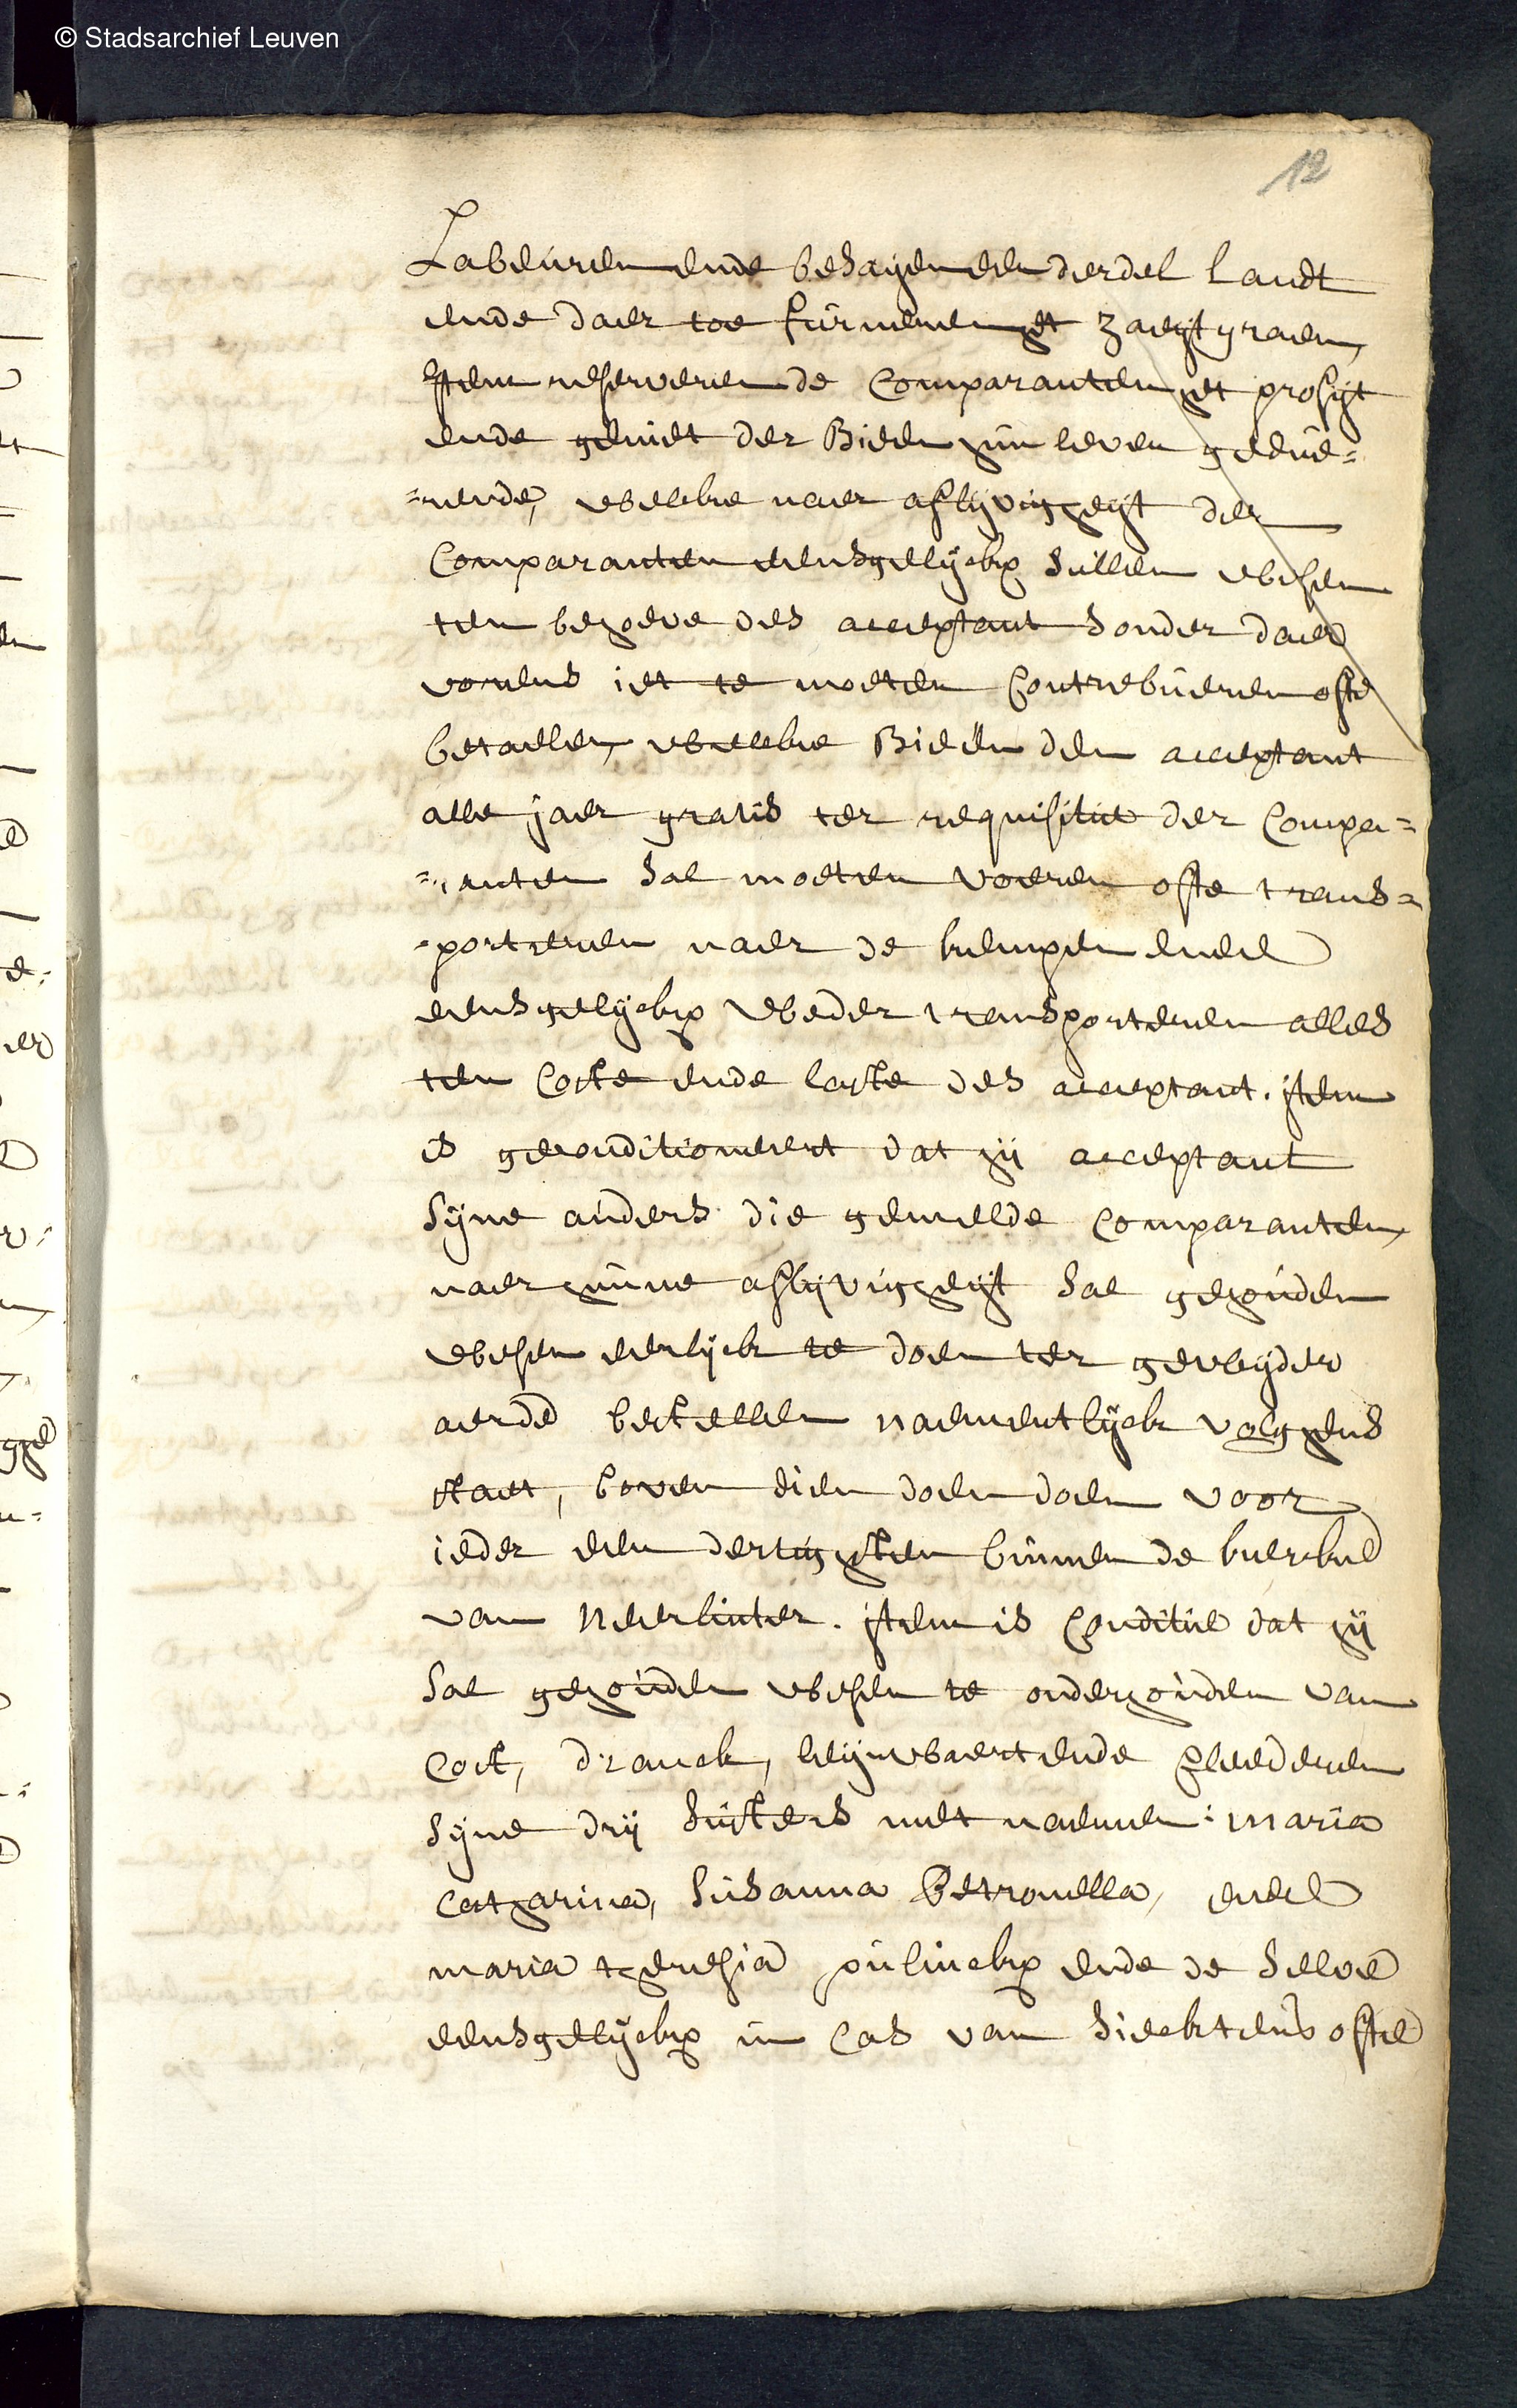 © Stadsarchief Leuven
12
Labeuren ende besayen een derdel landt
ende daer toe furneren het zaeijt graen,
Item reserveren de Comparanten het profijt
ende geniet der Bieen hun leven geeue=
=rende, welcke naer aflijvigheijt der
Comparanten eensgelijckx sullen wesen
ten behoeve des acceptant sonder daer
vorens iet te moeten Contribueren ofte
betaelen, welcke Bieën den acceptant
alle jaer gratis ter requisitie der Compa=
=ranten sal moeten voeren ofte trans=
=porteren naer de kempen ende
eensgelijckx weder transporteren alles
ten Coste ende laste des acceptant. item
is geconditioneert dat hij acceptant
sijne auders die gemelde Comparanten,
naer hunne aflijvigheijt sal gehouden
wesen eerlijck te doen ter gewijder
aerde bestellen naementlijck volghens
staet, boven dien doen doen voor
ieder een dertighsten binnen de kercke
van Neerlinter. item is Conditie dat hij
sal gehouden wesen te onderhouden van
Cost, dranck, leijnwaert ende kleederen
sijne drij susters met naemen: maria
Catharina, Susanna Petronella, ende
maria theresia pulinckx ende de selve
eensgelijckx in Cas van sieckten ofte